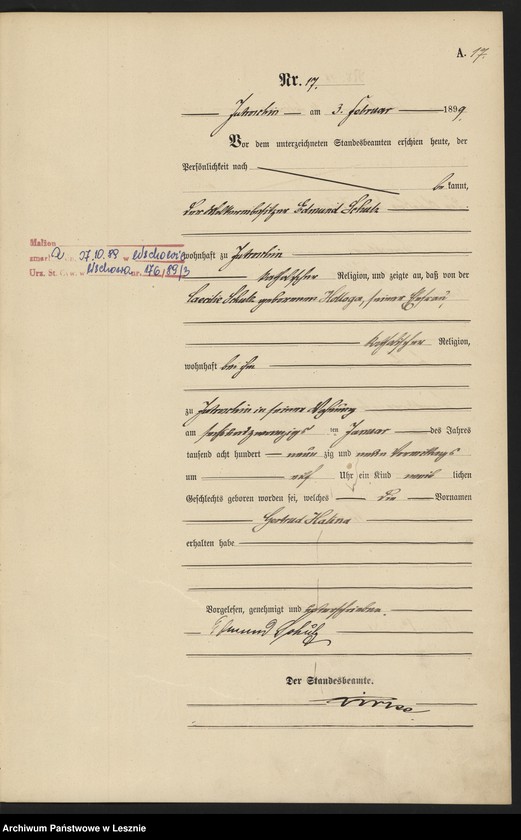 A. 17.
Nr. 17.
Jutroschin am 3. Februar 1899.
Vor dem unterzeichneten Standesbeamten erschien heute, der
Persönlichkeit nach
be kannt,
der Edmund Schulz
wohnhaft zu Jutroschin
katholischer Religion, und zeigte an, daß von der
Caecilie Schulz geborenen Hollaga, seiner Ehefrau,
katholischer Religion,
wohnhaft bei ihm
zu Jutroschin in seiner Wohnung
am sechsundzwanzigsten Januar des Jahres
tausend acht hundert neun zig und neun Vormittags
um Uhr ein Kind weib lichen
Geschlechts geboren worden sei, welches die Vornamen
Gertrud Halina
erhalten habe
Vorgelesen, genehmigt und unterschrieben.
Edmund Schulz
Der Standesbeamte.
Małżon
zmarł a 27.10.89 w Wschowie
Urz. St. Cyw. w Wschowa nr. 176/89/3
Archiwum Państwowe w Lesznie